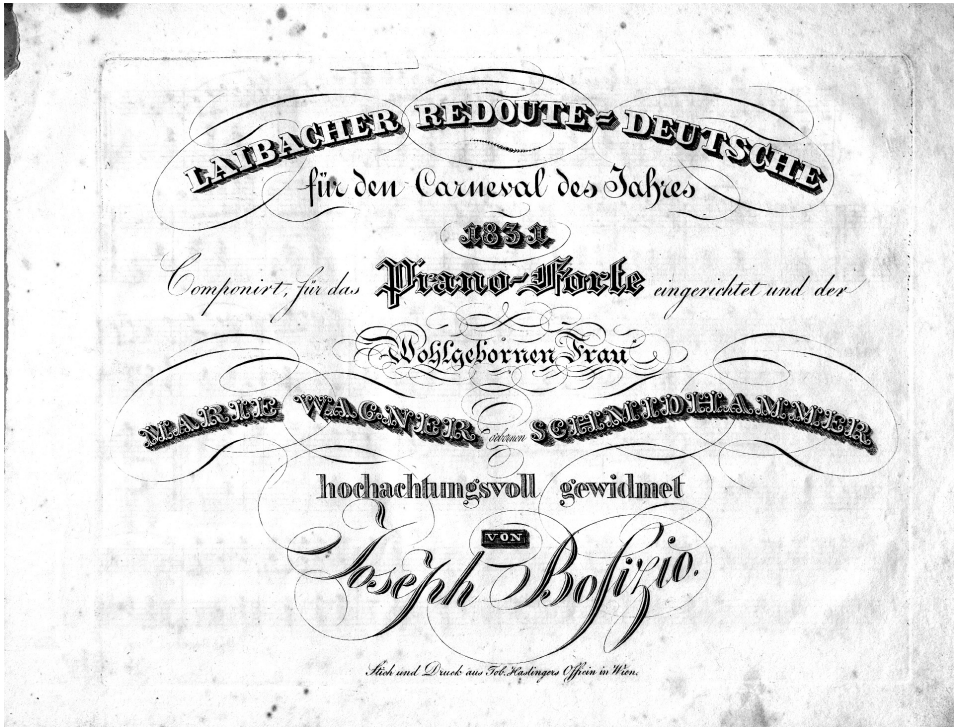 LAIBACHER REDOUTE-DEUTSCHE
für den Carneval des Jahres
1831
Componirt, für das Piano-Forte eingerichtet und der
Wohlgebornen Frau
MARIE WAGNER gebornen SCHMIDHAMMER
hochachtungsvoll gewidmet
VON
Joseph Bosizio.
Stich und Druck aus Tob. Haslingers Officin in Wien.